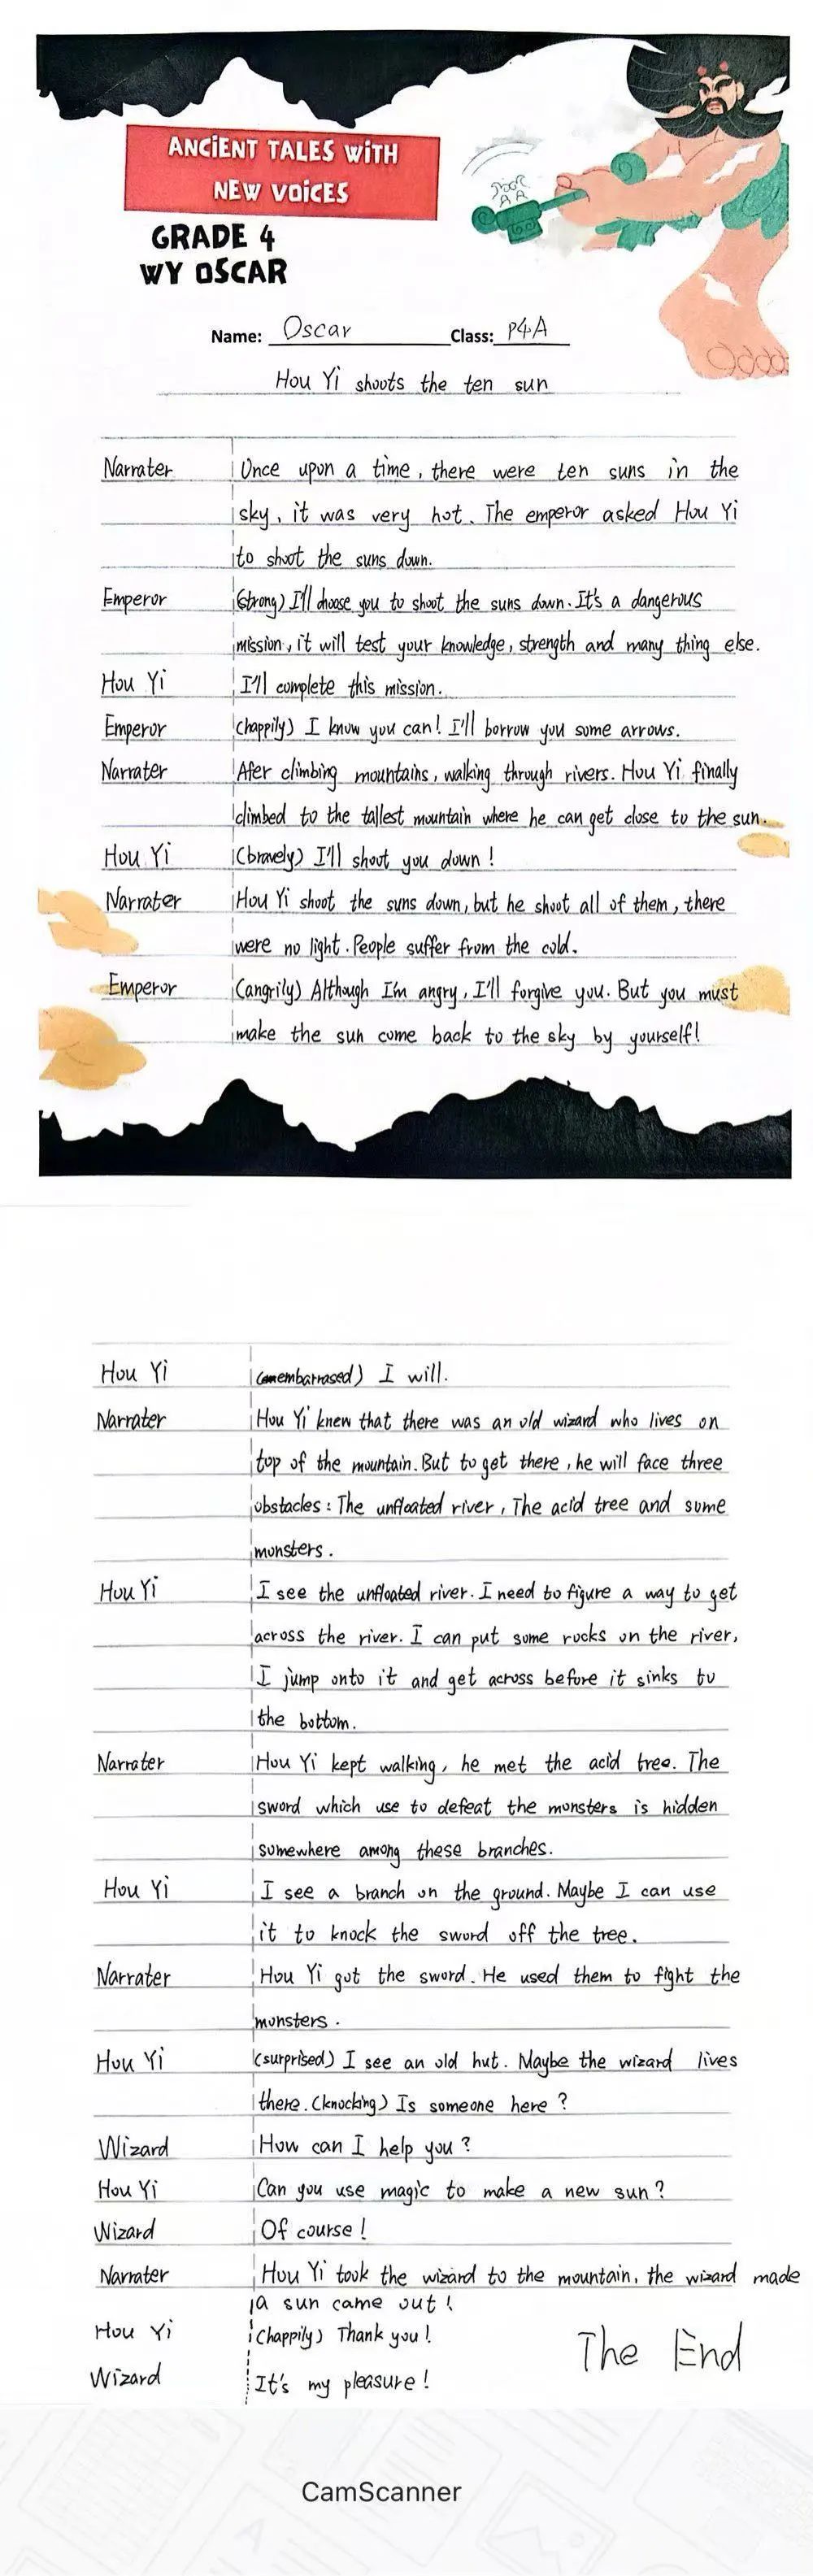 ANCiENT TALES WiTH
NEW VOiCES
GRADE 4
WY OSCAR
Name: Oscar Class: P4A
Hou Yi shoots the ten sun
Narrater Once upon a time, there were ten suns in the
sky, it was very hot. The emperor asked Hou Yi
to shoot the suns down.
Emperor (strong) I'll choose you to shoot the suns down. It's a dangerous
mission, it will test your knowledge, strength and many thing else.
Hou Yi I'll complete this mission.
Emperor (happily) I know you can! I'll borrow you some arrows.
Narrater Afer climbing mountains, walking through rivers. Hou Yi finally
climbed to the tallest mountain where he can get close to the sun.
Hou Yi (bravely) I'll shoot you down!
Narrater Hou Yi shoot the suns down, but he shoot all of them, there
were no light. People suffer from the cold.
Emperor (angrily) Although I'm angry, I'll forgive you. But you must
make the sun come back to the sky by yourself!
Hou Yi (embarrased) I will.
Narrater Hou Yi knew that there was an old wizard who lives on
top of the mountain. But to get there, he will face three
obstacles: The unfloated river, The acid tree and some
monsters.
Hou Yi I see the unfloated river. I need to figure a way to get
across the river. I can put some rocks on the river,
I jump onto it and get across before it sinks to
the bottom.
Narrater Hou Yi kept walking, he met the acid tree. The
sword which use to defeat the monsters is hidden
somewhere among these branches.
Hou Yi I see a branch on the ground. Maybe I can use
it to knock the sword off the tree.
Narrater Hou Yi got the sword. He used them to fight the
monsters.
Hou Yi (surprised) I see an old hut. Maybe the wizard lives
there. (knocking) Is someone here?
Wizard How can I help you?
Hou Yi Can you use magic to make a new sun?
Wizard Of course!
Narrater Hou Yi took the wizard to the mountain, the wizard made
a sun came out!
Hou Yi (happily) Thank you!
Wizard It's my pleasure!
The End
CamScanner